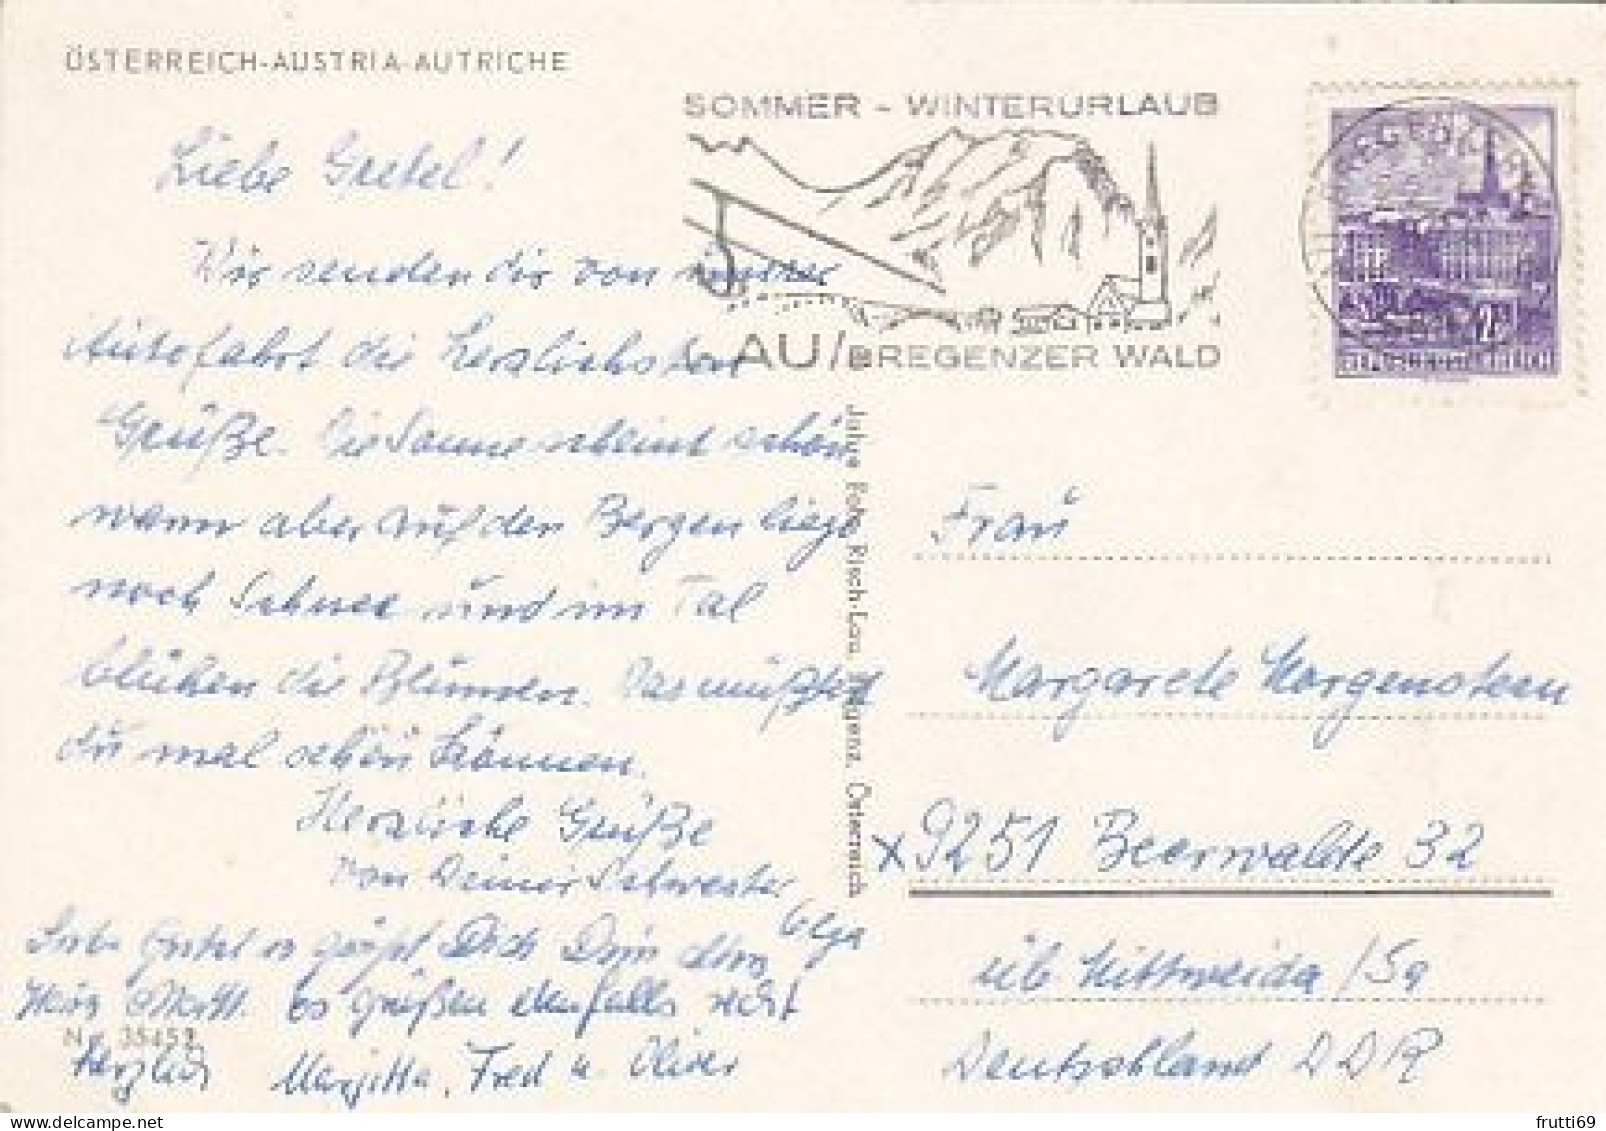 ÖSTERREICH-AUSTRIA-AUTRICHE
SOMMER - WINTERURLAUB
AU/BREGENZER WALD
Liebe Gretel!
Wir senden dir von unserer
Autofahrt die herzlichsten
Grüße. Die Sonne scheint schön
wenn aber auf den Bergen liegt
noch Schnee und im Tal
blühen die Blumen. Das müßtest
du mal sehen können.
Herzliche Grüße
von Deiner Schwester
Olga
Liebe Gretel es grüßt Dich Dein
Es grüßen ebenfalls recht
herzlich Margitta, Fred u. Oliver
Nr. 35452
Risch-Lau, Bregenz, Österreich
Frau
Margarete Morgenstern
x 9251 Beerwalde 32
üb. Mittweida /Sa
Deutschland DDR
frutti69